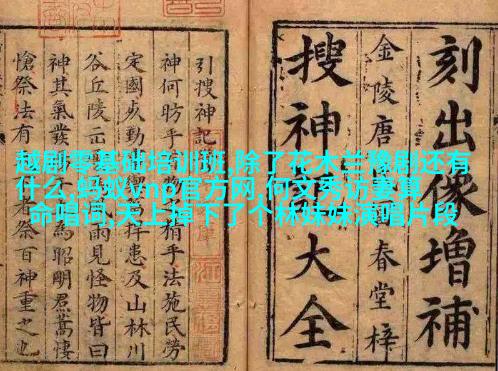 越剧零基础培训班,除了花木兰豫剧还有
什么,蚂蚁vnp官方网,何文秀访妻算
命唱词,天上掉下了个林妹妹演唱片段
刻出像增補
金陵唐春堂梓
搜神大全
引搜神記
神何昉乎乎法施民勞
定國捍患及山林川
谷丘陵雨見怪物皆曰
神其氣發為昭明焄蒿悽
愴祭法有者祭百神重之也